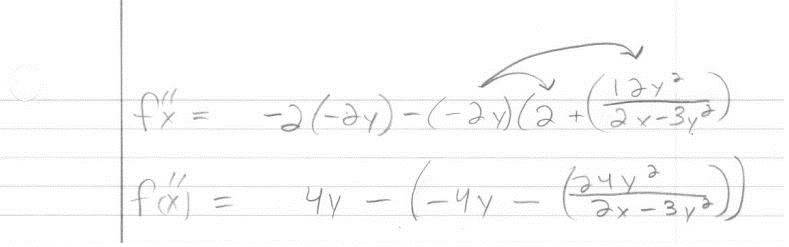 f''x = -2(-2y) - (-2y)(2 + (12y²/2x-3y²)
f''(x) = 4y - (-4y - (24y²/2x-3y²))